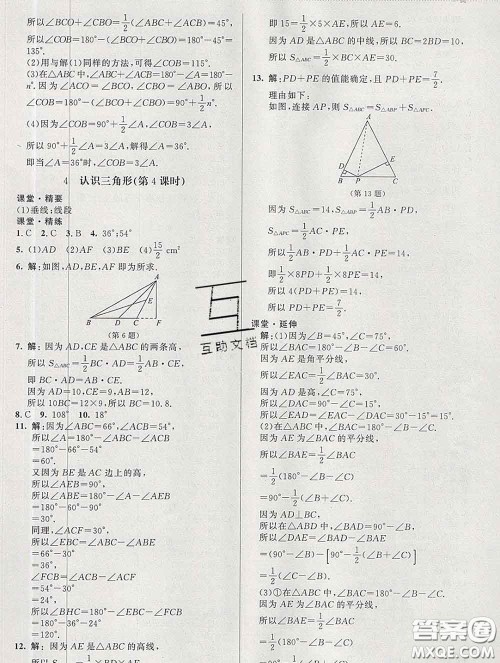 所以∠BCO+∠CBO=1/2(∠ACB+∠ABC)=45°.
所以∠COB=180°-(∠BCO+∠CBO)=180°-45°=
135°.
(2)用与解(1)同样的方法,可得∠COB=118°.
(3)在△ABC中,∠ABC+∠ACB=180°-∠A=180°-n°.
因为∠ACO=∠BCO=1/2∠ACB,∠ABO=∠CBO=
1/2∠ABC,所以∠COB=180°-(∠BCO+∠CBO)=
180°-1/2(∠ABC+∠ACB)=180°-1/2(180°-n°)=90°+1/2n°.
(4)因为∠COB=90°+1/2∠A,∠COB=3∠A,
所以90°+1/2∠A=3∠A,解得∠A=36°.
即当∠A=36°时,∠COB=3∠A.
4 认识三角形(第4课时)
课堂·精要
(1)垂线;线段
课堂·精练
1. C 2. C 3. B 4. 36°;54°
5. (1)AD (2)AF (3)BE (4)15/2 cm²
6. 解:如图,AD,BE,AF即为所求.
A
E
B D C F
(第6题)
7. 解:因为AD,CE是△ABC的两条高,
所以S△ABC=1/2BC·AD=1/2AB·CE.
即BC·AD=AB·CE.
因为AD=10,CE=9,AB=12,
所以10BC=12×9,所以BC=10.8.
8. C 9. 108° 10. 18°
11. 解:因为∠ABC=66°,∠ACB=54°,
所以∠A=180°-∠ABC-∠ACB
=180°-66°-54°
=60°.
又因为BE是AC边上的高,
所以∠ABE=90°-∠A=30°.
同理,∠ACF=30°.
所以∠HBC=∠ABC-∠ABE
=66°-30°
=36°.
∠FCB=∠ACB-∠ACF
=54°-30°
=24°.
所以∠BHC=180°-∠HBC-∠FCB
=180°-36°-24°
=120°.
12. 解:因为AE是△ABC的高线,
即15=1/2×5×AE,所以AE=6.
因为AD是△ABC的中线,所以BC=2BD=10.
所以S△ABC=1/2×BC·AE=1/2×10×6=30.
13. 解:PD+PE的值能确定,且PD+PE=7/2.
理由如下:
如图,连接AP,则S△ABC=S△ABP+S△APC.
A
D
E
B P C
(第13题)
因为S△ABP=1/2AB·PD,
S△APC=1/2AC·PE,
所以1/2AB·PD+1/2AC·PE=14.
因为AB=AC=8,
所以1/2×8PD+1/2×8PE=14,
即1/2×8(PD+PE)=14.
所以4(PD+PE)=14,
所以PD+PE=7/2.
课堂·延伸
解:(1)因为∠B=45°,∠C=75°,
所以∠BAC=180°-∠B-∠C=60°.
因为AE是角平分线,
所以∠EAC=1/2∠BAC=30°.
因为AD是高,∠C=75°,
所以∠DAC=90°-∠C=15°.
所以∠EAD=∠EAC-∠DAC=30°-15°=15°.
(2)在△ABC中,∠BAC=180°-∠B-∠C.
因为AE为∠BAC的平分线,
所以∠BAE=1/2∠BAC
=1/2(180°-∠B-∠C).
因为AD⊥BC,
所以在△ABD中,∠BAD=90°-∠B.
所以∠DAE=∠BAD-∠BAE
=(90°-∠B)-[90°-1/2(∠B+∠C)]
=1/2(∠C-∠B).
(3)①在△ABC中,
∠BAC=180°-∠B-∠C.
因为AE为∠BAC的平分线,
所以∠BAE=1/2∠BAC
=1/2(180°-∠B-∠C).
互助文档
答案圈
MXQE.COM